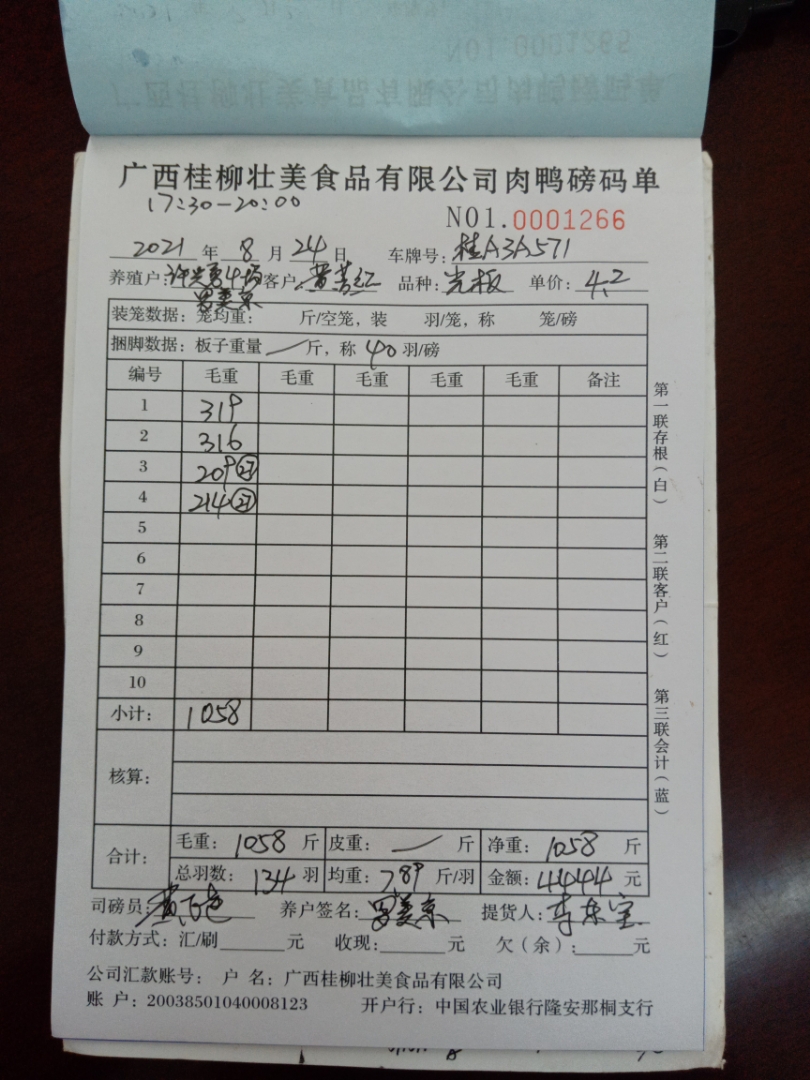 广西桂柳壮美食品有限公司肉鸭磅码单
17:30-20:00
NO1.0001266
2021 年 8 月 24 日 车牌号: 桂A3A571
养殖户: 许兴勇4场 客户: 黄 红 品种: 光板 单价: 4.2
罗美京
装笼数据: 笼均重: 斤/空笼, 装 羽/笼, 称 笼/磅
捆脚数据: 板子重量 — 斤, 称 40 羽/磅
编号 毛重 毛重 毛重 毛重 毛重 备注
1 319
2 316
3 209 27
4 214 27
5
6
7
8
9
10
小计: 1058
核算:
合计: 毛重: 1058 斤 皮重: — 斤 净重: 1058 斤
总羽数: 134 羽 均重: 789 斤/羽 金额: 4444 元
司磅员: 黄 养户签名: 罗美京 提货人: 李东宝
付款方式: 汇/刷 元 收现: 元 欠(余): 元
公司汇款账号: 户 名: 广西桂柳壮美食品有限公司
账 户: 20038501040008123 开户行: 中国农业银行隆安那桐支行
第一联存根(白) 第二联客户(红) 第三联会计(蓝)